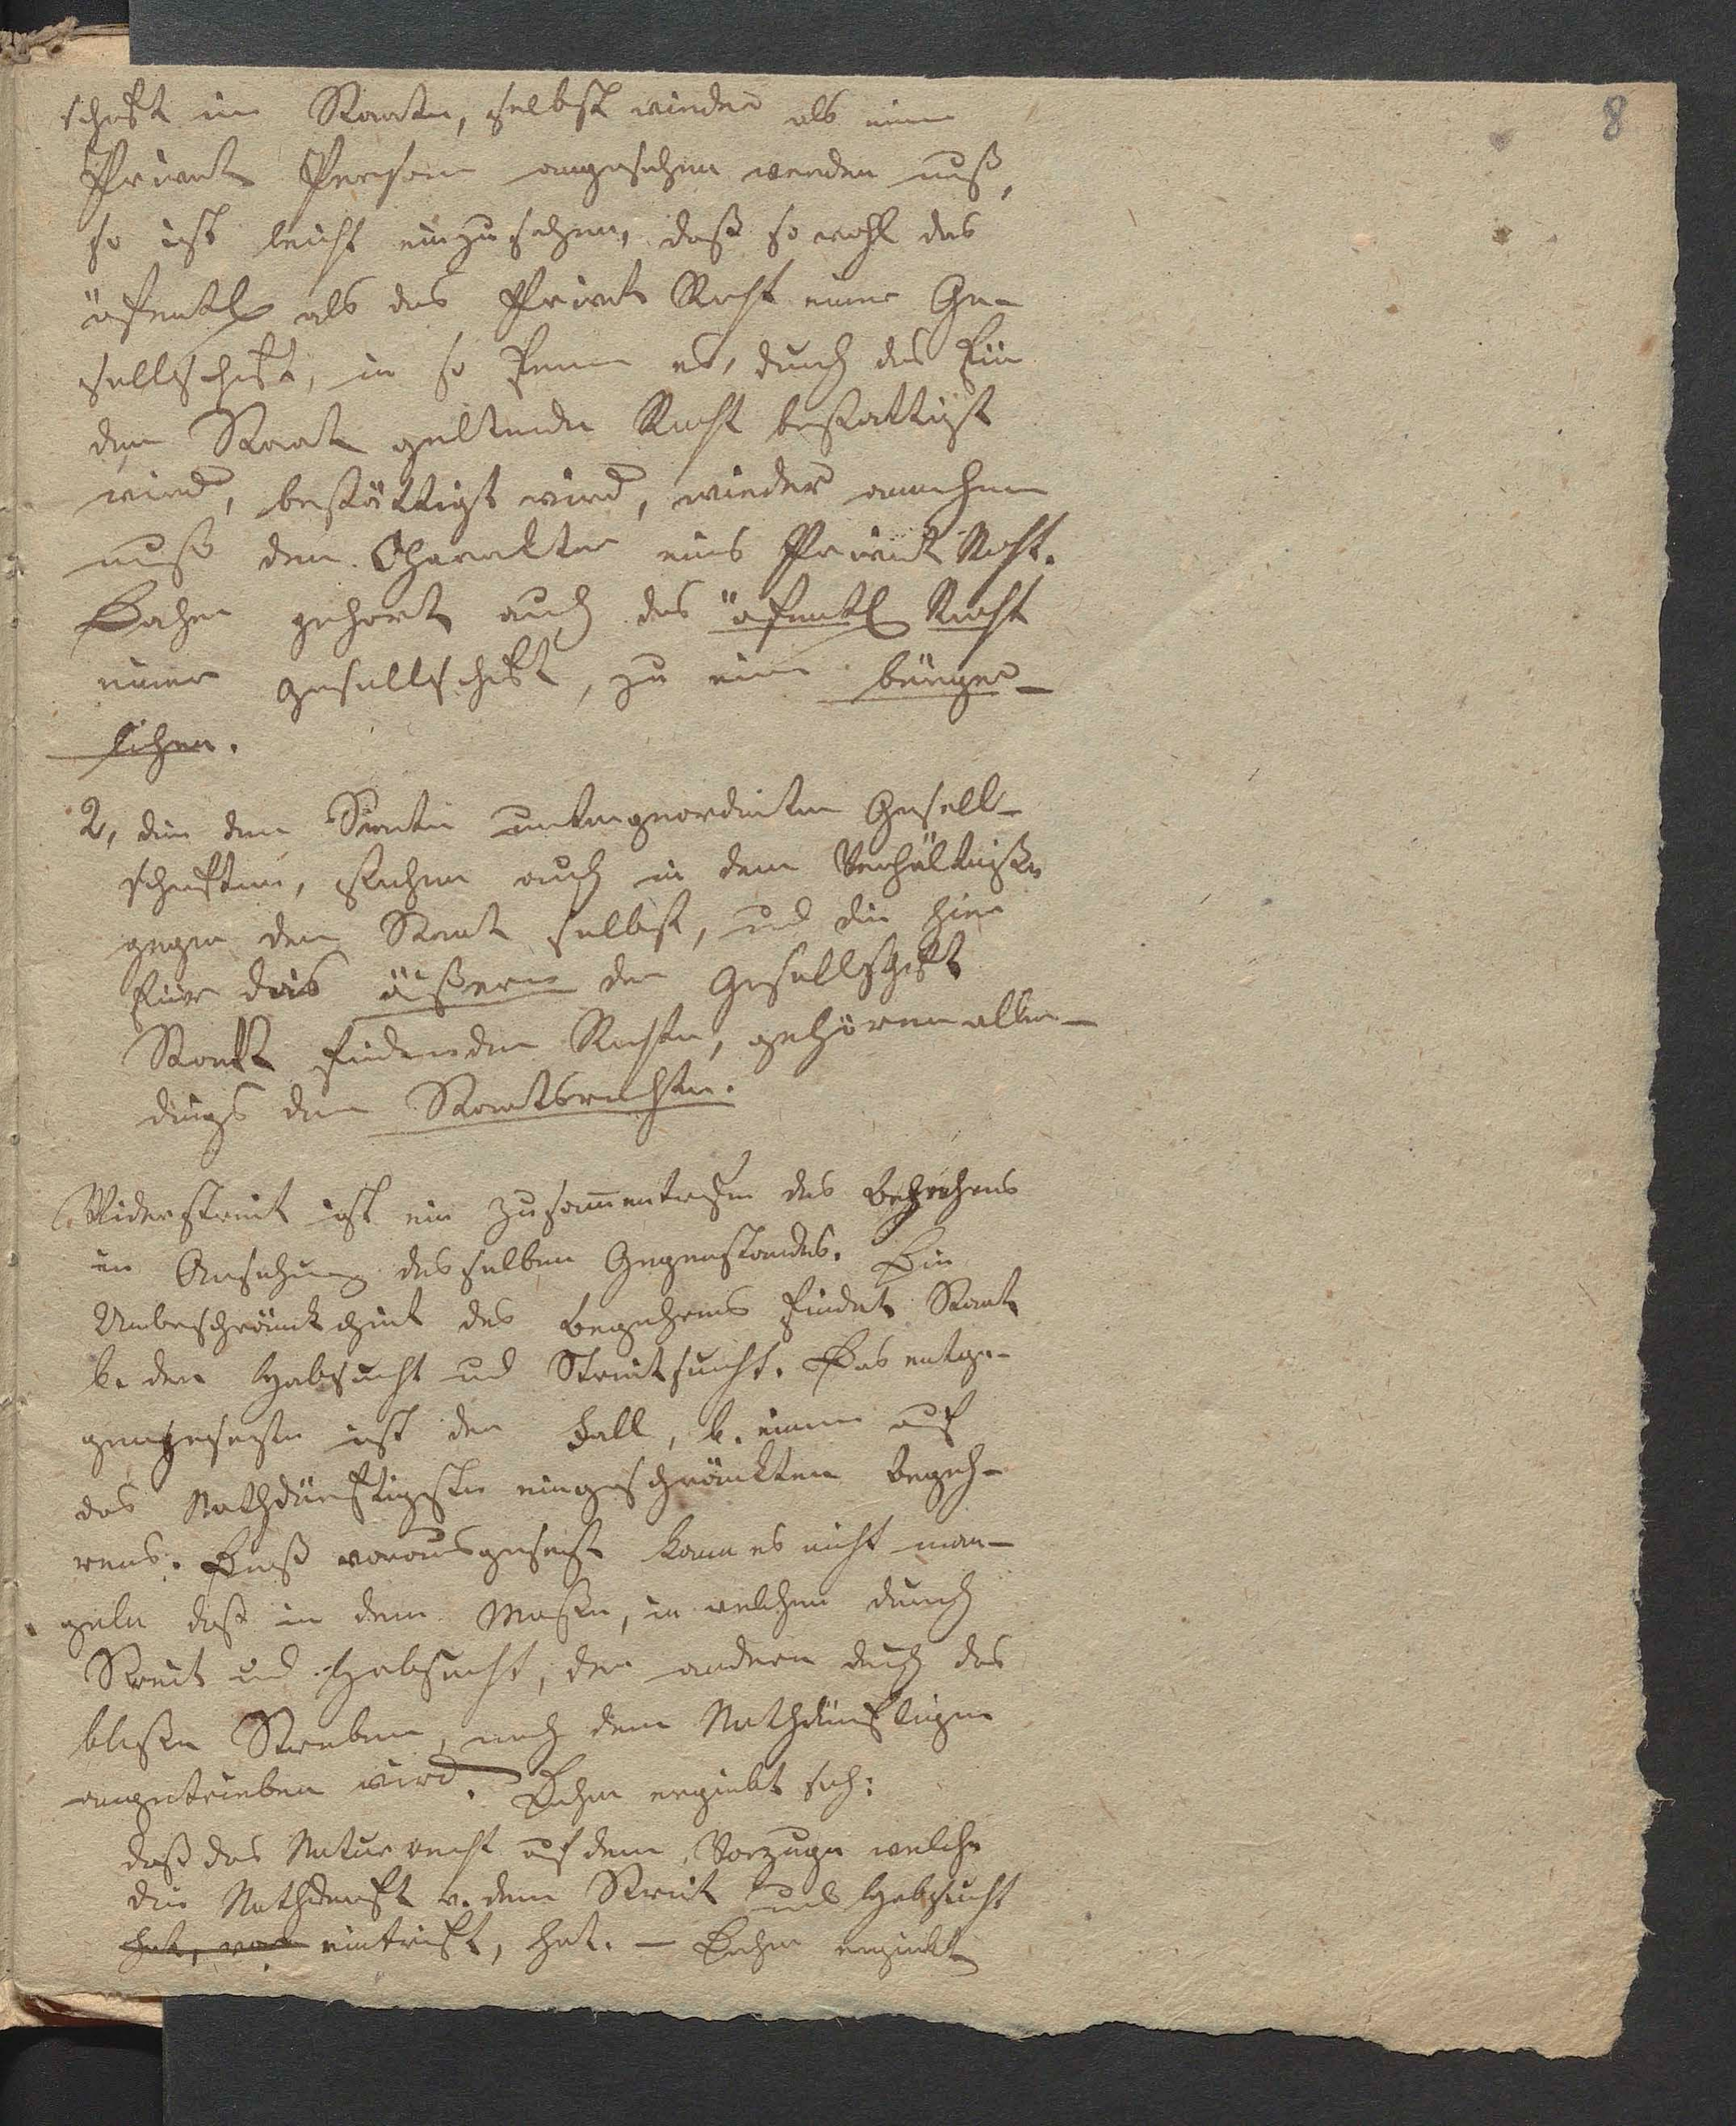 8
schaft im Staate, selbst wieder als eine
Privat Person angesehen werden muß,
so ist leicht einzusehen, daß so wohl das
öfentl als das Privat Recht einer Ge-
sellschaft, in so fern es, durch das für
den Staat geltende Recht bestattigt
wird, bestättigt wird, wieder annehmen
muß den Charakter eines Privat Recht.
Daher gehort auch das öfentl Recht
einer Gesellschaft, zu einem bürger-
lichen.
2, die dem Staate untergeordneten Gesell-
schaften, stehen auch in dem Verhältniße
gegen den Staat selbst, und die hier
für das äußere der Gesellschaft
Statt findenden Rechte, gehören aller-
dings dem Staatsrechte.
Widerstreit ist ein Zusammentrefen des Begehrens
in Ansehung desselben Gegenstandes. Ein
Unbeschränktheit des Begehrens findet Statt
b. der Habsucht und Streitsucht. Das entge-
gengesezte ist der Fall, b. einem auf
das Nothdürftigste eingeschränkten Begeh-
rens. Dieß vorausgesezt kann es nicht man-
geln daß in dem Maße, in welchem durch
Streit und Habsucht, der andere durch das
bloße Streben, nach dem Nothdürftigen
angetrieben wird. Daher ergiebt sich:
daß das Naturrecht auf dem Vorzuge welche
die Nothdurft v. dem Streit und Habsucht
hat, eintrift, hat. – Daher ergiebt